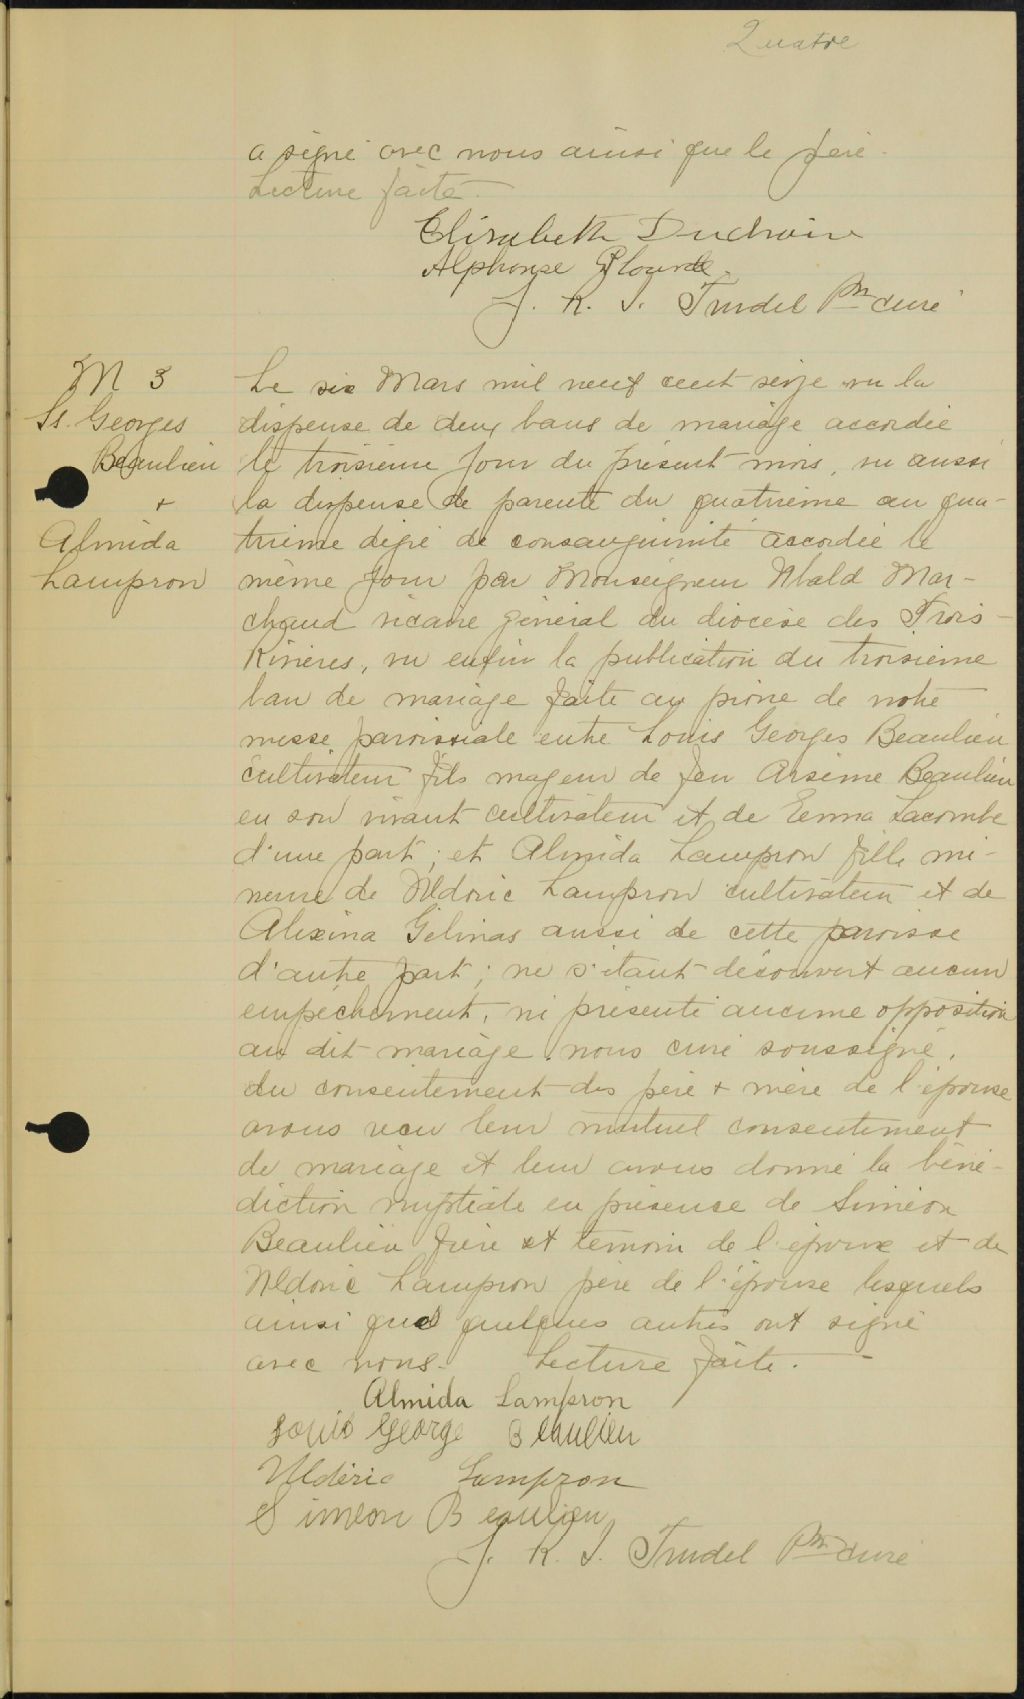 Quatre
a signé avec nous ainsi que le père.
Lecture faite.
Elisabeth
Alphonse Plourde
J. R. I. Trudel Ptre curé
M 3
Ls. Georges
Beaulieu
+
Almida
Lampron
Le six Mars mil neuf cent seize vu la
dispense de deux bans de mariage accordée
le troisième jour du présent mois, vu aussi
la dispense de parenté du quatrième au qua-
trième degré de consanguinité accordée le
même jour par Monseigneur Ubald Mar-
chand vicaire général du diocèse des Trois-
Rivières, vu enfin la publication du troisième
ban de mariage faite au prône de notre
messe paroissiale entre Louis Georges Beaulieu
cultivateur fils majeur de feu Arsème Beaulieu
en son vivant cultivateur et de Emma Lacombe
d'une part; et Almida Lampron fille mi-
neure de Uldoric Lampron cultivateur et de
Alexina Gélinas aussi de cette paroisse
d'autre part; ne s'étant découvert aucun
empêchement, ni présenté aucune opposition
au dit mariage, nous curé soussigné,
du consentement des père + mère de l'épouse
avons reçu leur mutuel consentement
de mariage et leur avons donné la béné-
diction nuptiale en présence de Siméon
Beaulieu frère et témoin de l'époux et de
Uldoric Lampron père de l'épouse lesquels
ainsi que quelques autres ont signé
avec nous. Lecture faite.
Almida Lampron
Louis George Beaulieu
Uldéric Lampron
Siméon Beaulieu
J. R. I. Trudel Ptre curé